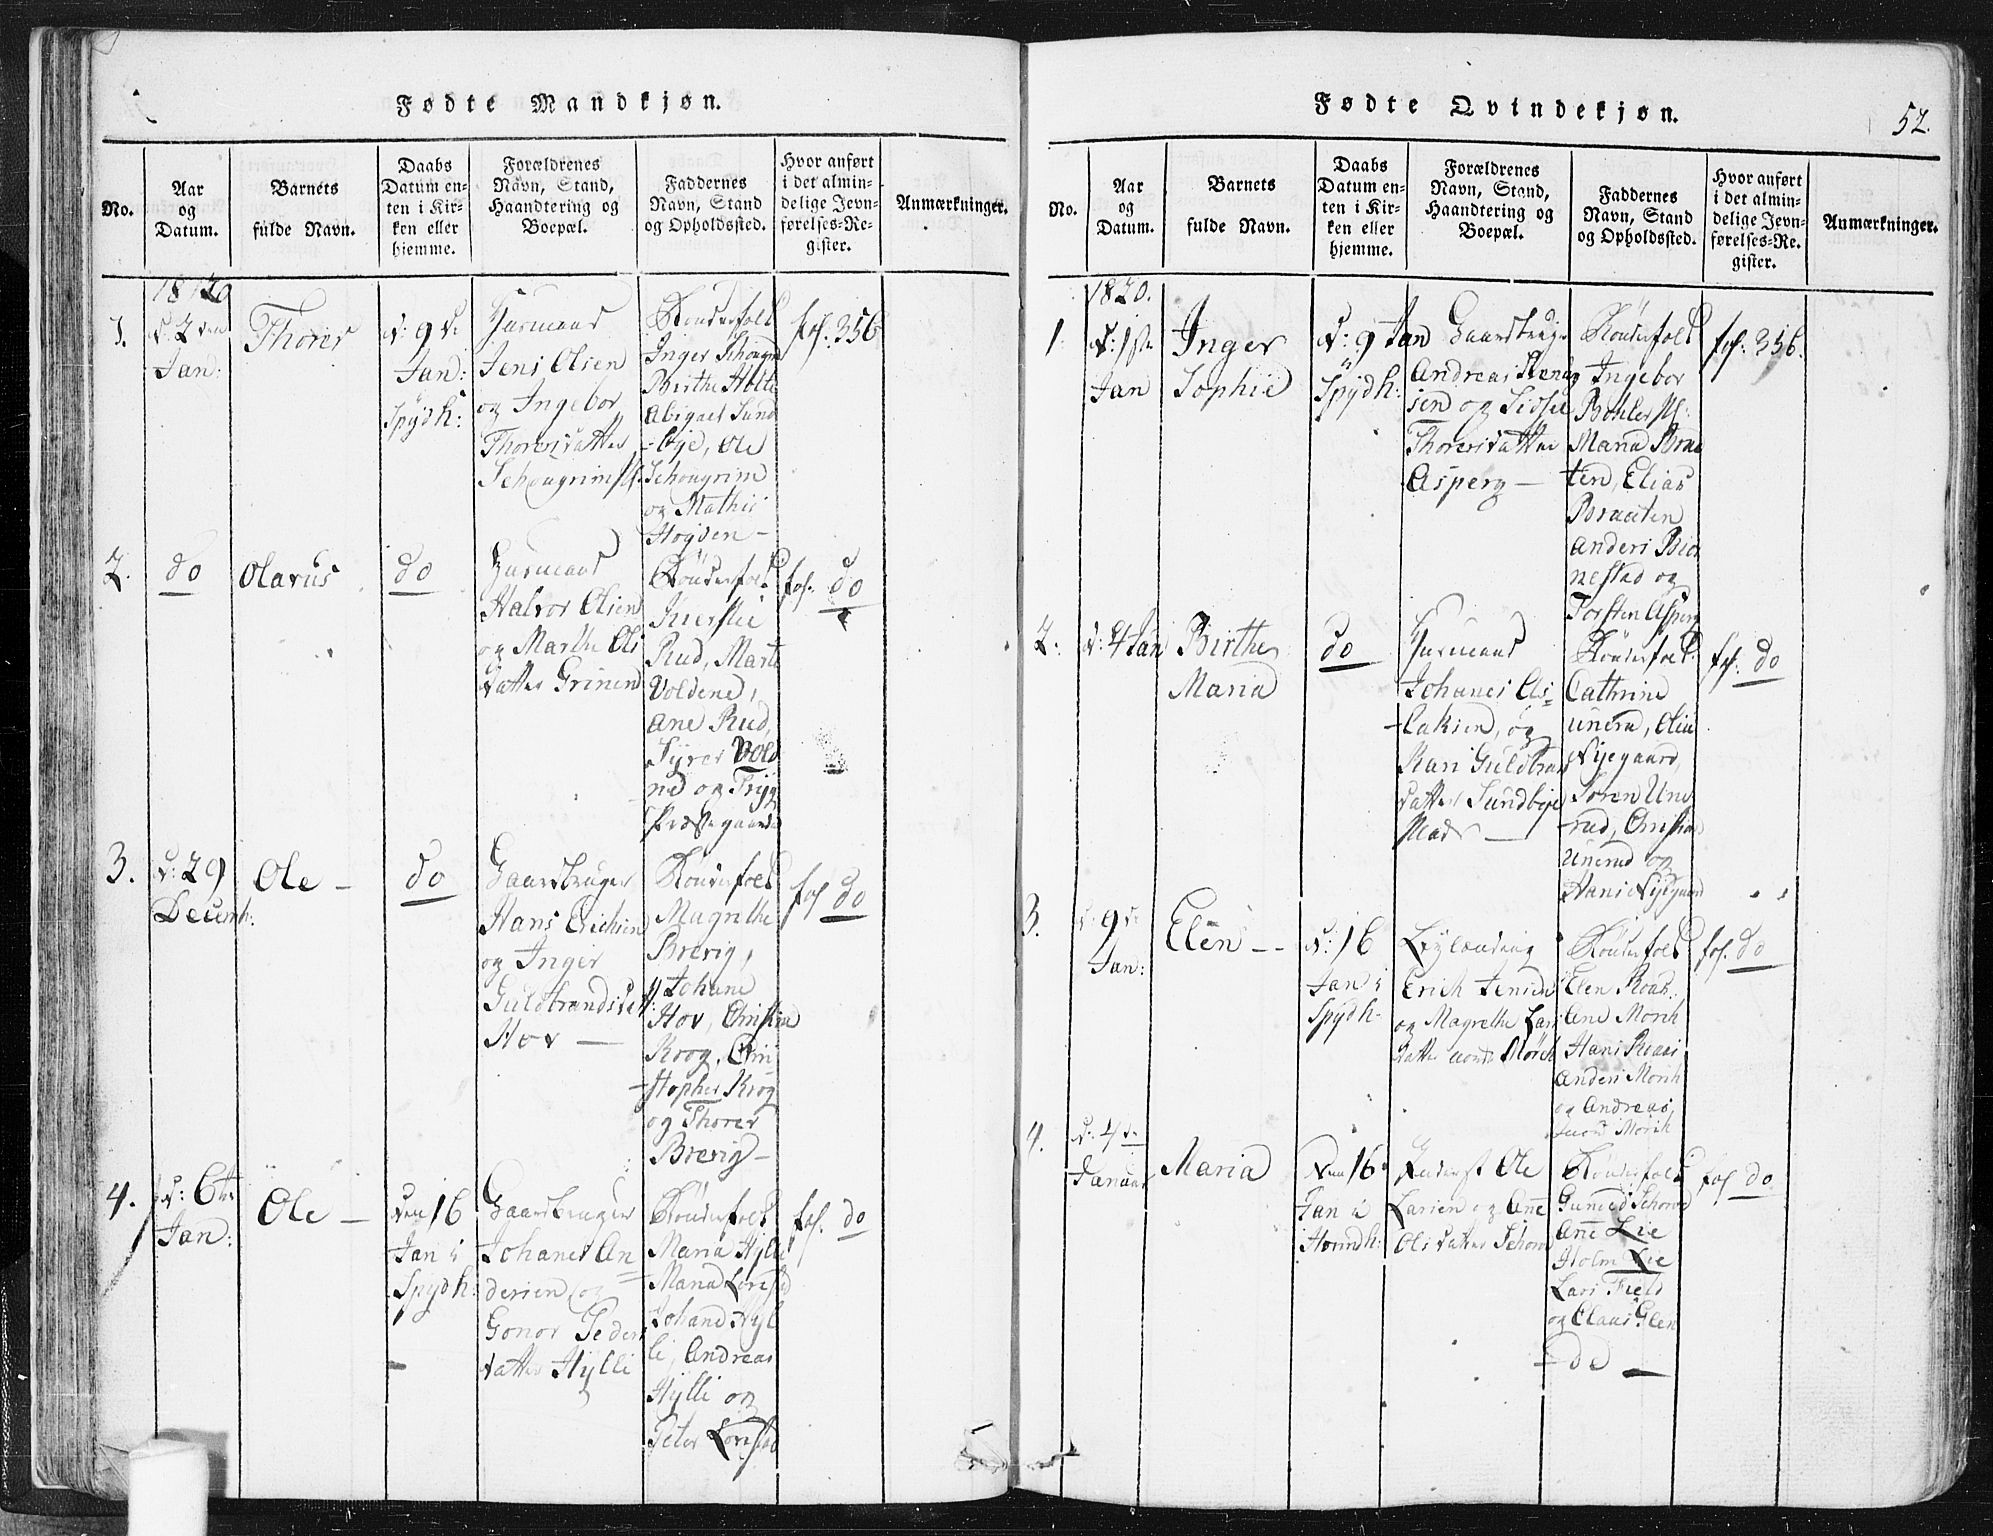 Fødte Mandkjøn.
No.
Aar
og
Datum.
Barnets
fulde Navn.
Daabs
Datum en-
ten i Kir-
ken eller
hjemme.
Forældrenes
Navn, Stand,
Haandtering og
Boepæl.
Faddernes
Navn, Stand
og Opholdssted.
Hvor anført
i det almin-
delige Jevn-
førelses-Re-
gister.
Anmærkninger.
1.
1820
d: 2den
Jan:
Thorer
d: 9de
Jan:
Spydh:
Huusmand
Jens Olsen
og Ingebor
Thoresdatter
Schougrim
Bønderfolk
Inger Schougr
Birthe Holte
Abigael Sund
-bye, Ole
Schougrim
og Mathis
Høyden –
fol. 356
2.
do
Olavus
do
Huusmand
Halvor Olsen
og Marthe Ols
datter Grinen
Bønderfolk
Kierstie
Rud, Marte
Voldene,
Ane Rud,
Syver Vold
ne og Tryg
Præstegaarde
fol. do
3.
d: 29
Decemb:
Ole –
do
Gaardbruger
Hans Erichsen
og Inger
Guldbrandsdatt:
Hov –
Bønderfolk
Magrethe
Brevig,
Johane
Hov, Christine
Krog, Chri
-stopher Krog
og Thorer
Brevig –
fol do
4.
d: 6te
Jan:
Ole –
den 16
Jan i
Spydh:
Gaardbruger
Johanes An=
dersen og
Gonor Peders
datter Hylli
Bønderfolk
Maria Hylli
Maria Lorestad
Johane Hyl
li, Andreas
Hylli og
Peter Lorestad
fol. do
Fødte Qvindekjøn.
52.
No.
Aar
og
Datum.
Barnets
fulde Navn.
Daabs
Datum en-
ten i Kir-
ken eller
hjemme.
Forældrenes
Navn, Stand,
Haandtering og
Boepæl.
Faddernes
Navn, Stand
og Opholdssted.
Hvor anført
i det almin-
delige Jevn-
førelses-Re-
gister.
Anmærkninger.
1
1820.
d: 1ste
Jan
Inger
Sophie
d: 9 Jan
Spydh:
Gaardbruger
Andreas
sen og Sidsel
Thoresdatter
Asperg –
Bønderfolk
Ingebor
Bøhler
Maria Braa
ten, Elias
Braaten
Anders Biør
nestad og
Torsten Asperg
fol. 356.
2.
d: 4 Jan
Birthe
Maria
do
Huusmand
Johanes As=
-laksen, og
Kari Guldbran
datter Sundbye
Plads –
Bønderfolk
Cathrine
Unerud, Olia
Nygaard,
Søren Une
-rud, Christian
Unerud og
Hans Nygaard
fol. do
3.
d: 9de
Jan:
Elen –
d: 16
Jan i
Spydh-
Leylænding
Erich Jensen
og Magrethe Lars
datter Mørch
Bønderfolk
Elen Roas:
Ane Mørch
Hans Roaas
Anders Mørch
og Andreas
Mørch
fol. do
4.
d: 4de
Januar
Maria
den 16
Jan i
Hovindh:
Ole
Larsen og Ane
Olsdatter Schoru
Bønderfolk
Gunild Schorud
Ane Lie
Holm Lie
Lars Field
og Claus Glen
-de –
fol do